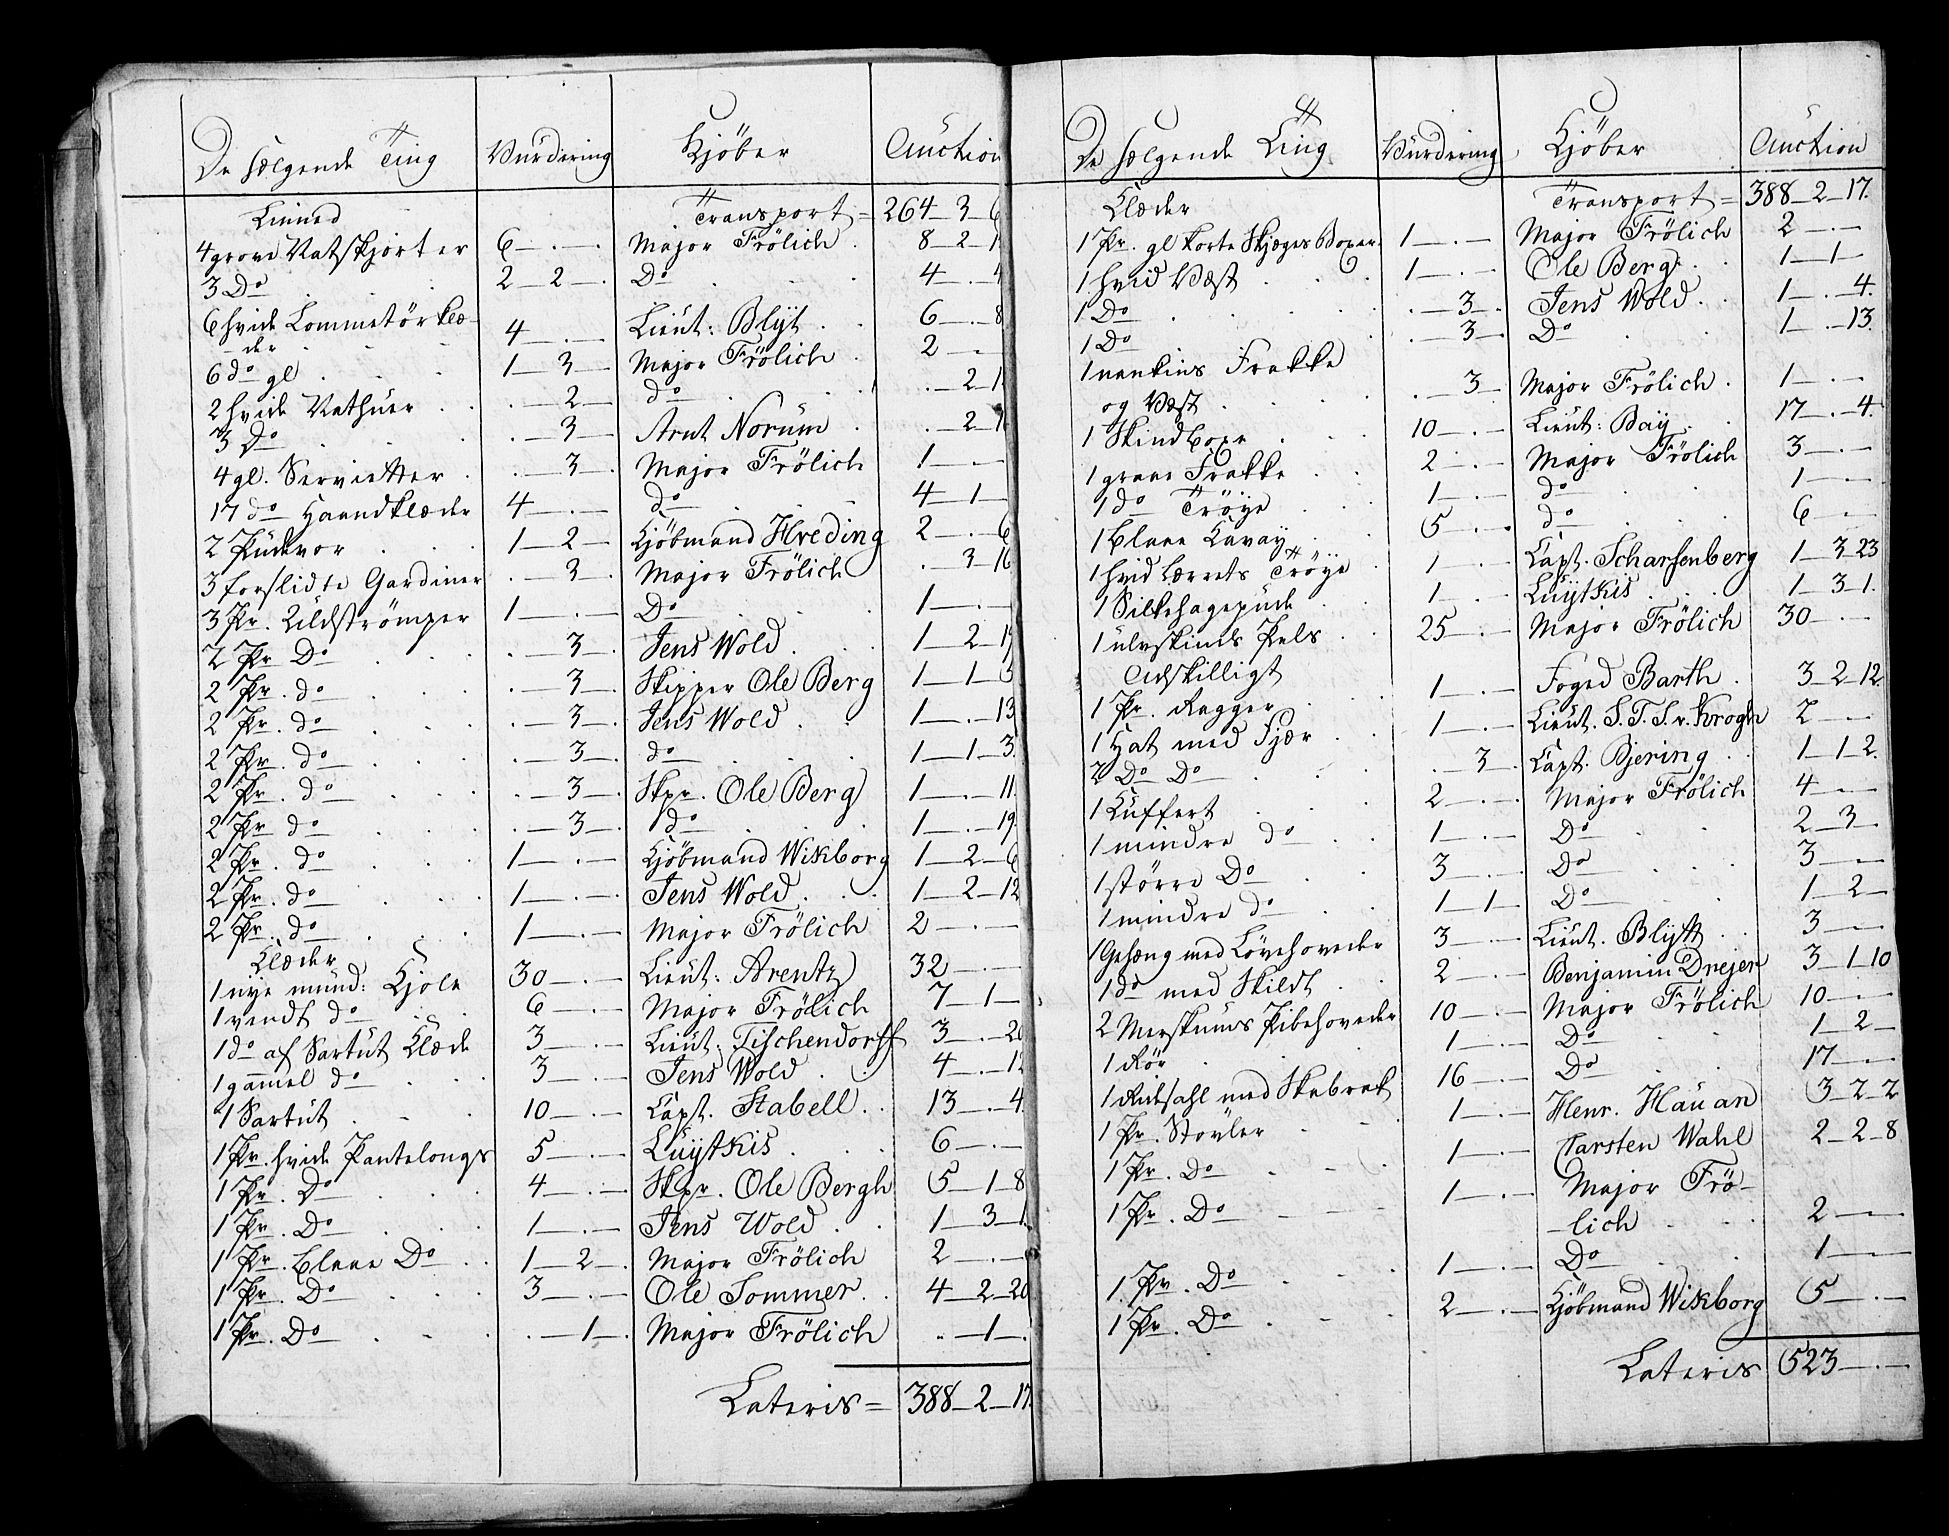 De sælgende Ting Vurdering Kjöber Auction
Linned Transport = 264_3_6
4 grove Natskjorter 6_._ Major Frölich 8_2_1
3 Do 2_2_ Do 4_._4
6 hvide Lommetörklæ- 4_._ Lieut: Blÿt 6_._8
der
6 do gl 1_3_ Major Frölich 2_._
2 hvide Nathuer ._2_ do ._2_1
3 Do ._3_ Arnt Norum ._2_
4 gl. Servietter ._3_ Major Frölich 1_._
17 do Haandklæder 4_._ do 4_1_
2 Pudevor 1_2_ Kjöbmand Hveding 2_._6
3 forslidte Gardiner ._3_ Major Frölich ._3_16
3 Pr. Uldströmper 1_._ Do 1_._
2 Pr Do ._3_ Jens Wold 1_2_1
2 Pr. do ._3_ Skipper Ole Berg 1_1_5
2 Pr. do ._3_ Jens Wold 1_._13
2 Pr. do ._3_ do 1_1_3
2 Pr. do ._3_ Skpr. Ole Berg 1_._11
2 Pr do ._3_ do 1_._19
2 Pr. do 1_._ Kjöbmand Wikborg 1_2_6
2 Pr. do 1_._ Jens Wold 1_2_12
2 Pr. do 1_._ Major Frölich 2_._
Klæder
1 nye mund: Kjole 30_._ Lieut: Arentz 32_._
1 vendt do 6_._ Major Frölich 7_1_
1 do af Sartut Klæde 3_._ Lieut. Tischendorff 3_._20
1 gammel do 3_._ Jens Wold 4_._12
1 Sartut 10_._ Capt. Stabell 13_._4
1 Pr. hvide Pantelongs 5_._ Luÿtkis 6_._
1 Pr. Do 4_._ Skpr. Ole Bergh 5_1_8
1 Pr. Do 1_._ Jens Wold 1_3_1
1 Pr. blaae Do 1_2_ Major Frölich 2_._
1 Pr. Do 3_._ Ole Sommer 4_2_20
1 Pr. Do ._1_ Major Frölich ._1_
Lateris = 388_2_17.
De sælgende Ting Vurdering Kjöber Auction
Klæder Transport = 388_2_17.
1 Pr. gl korte Skjægs Boxer 1_._ Major Frölich 2_._
1 hvid Væst 1_._ Ole Berg 1_1_
1 Do ._3_ Jens Wold 1_._4.
1 Do ._3_ Do 1_._13.
1 nankins Frakke
og Væst ._3_ Major Frölich 1_._
1 Skindboxe 10_._ Lieut: Bay 17_._4.
1 graae Frakke 2_._ Major Frölich 3_._
1 do Tröye 1_._ do 1_._
1 blaae Cavay 5_._ do 6_._
1 hvid Lærrets Tröye 1_._ Capt. Scharfenberg 1_3_23
1 Silkehagepude 1_._ Luÿtkis 1_3_1.
1 ulveskinds Pels 25_._ Major Frölich 30_._
Adskilligt
1 Pr. Ragger 1_._ Foged Barth 3_2_12.
1 Hat med Fjær 1_._ Lieut. S.T.S.v. Krogh 2_._
2 Do Do ._3_ Capt. Bjering 1_1_2.
1 Kuffert 2_._ Major Frölich 4_._
1 mindre do 1_._ Do 2_3_
1 större Do 3_._ Do 3_._
1 mindre do 1_1_ Do 1_2_
1 Gehæng med Lövehoveder 3_._ Lieut. Blÿtt 3_._
1 do med Skildt 2_._ Benjamin Drejer 3_1_10
2 Merskums Pibehoveder 10_._ Major Frölich 10_._
1 Rör 1_._ Do 1_2_
1 Ridsahl med Skabrak 16_._ Do 17_._
1 Pr. Stövler 1_._ Henr. Hauan 3_2_2
1 Pr. Do 1_._ Carsten Wahl 2_2_8
1 Pr. Do 1_._ Major Frö-
-lich 2_._
1 Pr. Do 1_._ Do 1_._
1 Pr. Do 2_._ Kjöbmand Wikborg 5_._
Lateris 523_._